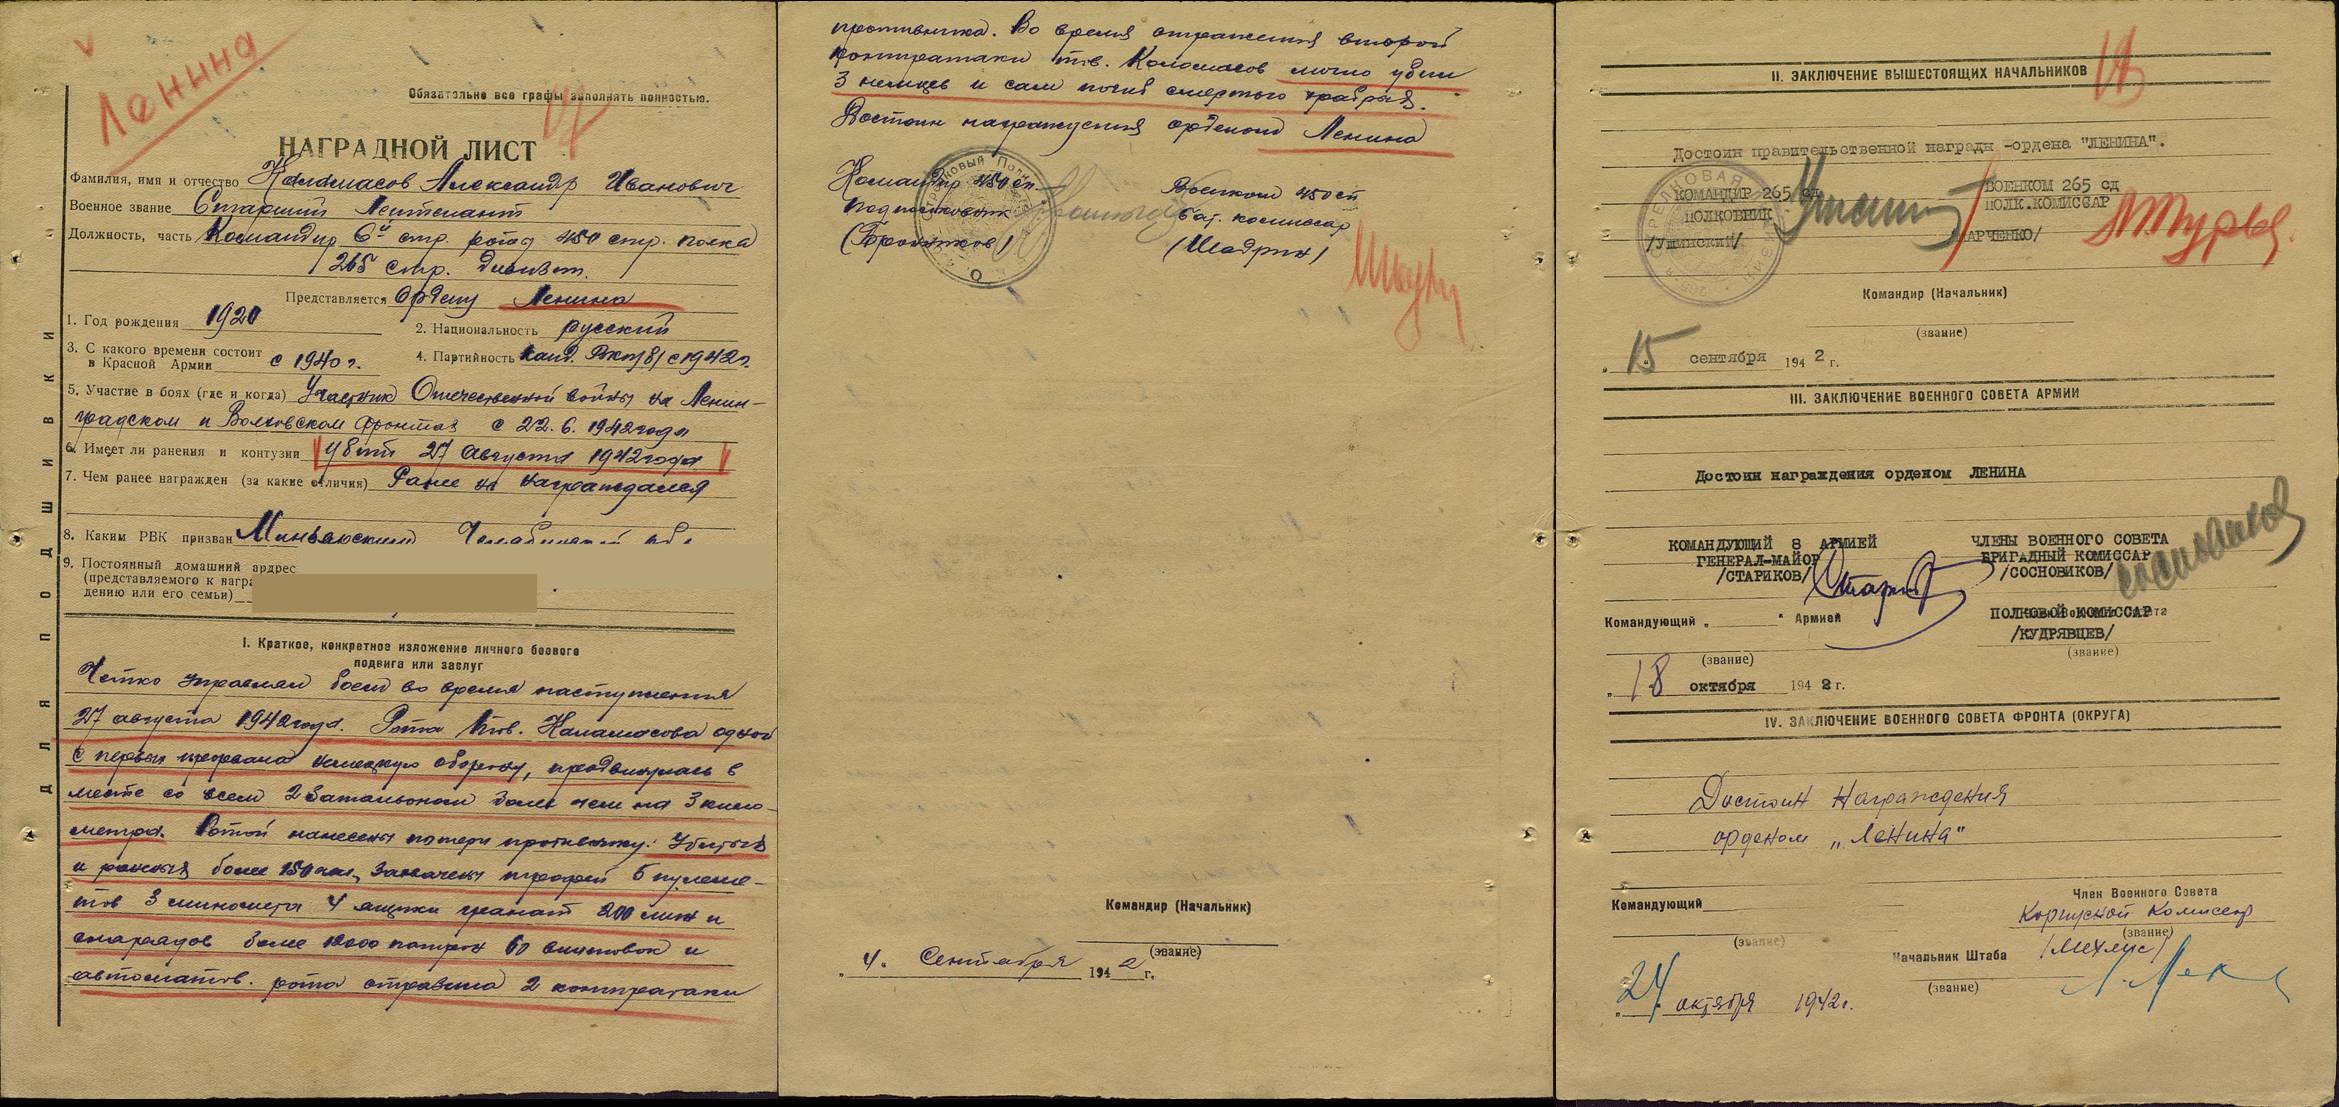 Ленина
Обязательно все графы заполнять полностью.
НАГРАДНОЙ ЛИСТ
Фамилия, имя и отчество Каламасов Александр Иванович
Военное звание Старший Лейтенант
Должность, часть Командир 6й стр. роты 450 стр. полка
265 стр. дивизии.
Представляется Ордену Ленина
1. Год рождения 1920
2. Национальность русский
3. С какого времени состоит
в Красной Армии с 1940 г.
4. Партийность канд. ВКП/б/ с 1942 г.
5. Участие в боях (где и когда) Участник Отечественной войны на Ленин-
градском и Волховском фронтах с 22.6.1942 года
6. Имеет ли ранения и контузии убит 27 августа 1942 года
7. Чем ранее награжден (за какие отличия) Ранее не награждался
8. Каким РВК призван Миньярским Челябинской обл.
9. Постоянный домашний адрес
(представляемого к награ
дению или его семьи)
ДЛЯ ПОДШИВКИ
I. Краткое, конкретное изложение личного боевого
подвига или заслуг
Четко управлял боем во время наступления
27 августа 1942 года. Рота тов. Каламасова одной
с первых прорвала немецкую оборону, продвинулась в
месте со всем 2 батальоном более чем на 3 кило-
метра. Ротой нанесены потери противнику: Убитых
и раненых более 150 чел, захвачены трофеи 6 пулеме-
тов 3 миномета 4 ящика гранат 200 мин и
снарядов более 10000 патрон 60 винтовок и
автоматов. рота отразила 2 контратаки
противника. Во время отражения второй
контратаки тов. Каламасов лично убил
3 немцев и сам погиб смертью храбрых.
Достоин награждения орденом Ленина
Командир 450 сп.
Подполковник
(Бронников)
Военком 450 сп
бат. комиссар
(Шадрин)
Командир (Начальник)
(звание)
„ 4. Сентября 1942 г.
II. ЗАКЛЮЧЕНИЕ ВЫШЕСТОЯЩИХ НАЧАЛЬНИКОВ
Достоин правительственной награды -ордена "ЛЕНИНА".
КОМАНДИР 265 сд
ПОЛКОВНИК
/Ушинский/
ВОЕНКОМ 265 сд
ПОЛК.КОМИССАР
АРЧЕНКО/
Командир (Начальник)
(звание)
„ 15 сентября 1942 г.
III. ЗАКЛЮЧЕНИЕ ВОЕННОГО СОВЕТА АРМИИ
Достоин награждения орденом ЛЕНИНА
КОМАНДУЮЩИЙ 8 АРМИЕЙ
ГЕНЕРАЛ-МАЙОР
/СТАРИКОВ/
ЧЛЕНЫ ВОЕННОГО СОВЕТА
БРИГАДНЫЙ КОМИССАР
/СОСНОВИКОВ/
ПОЛКОВОЙ КОМИССАР
/КУДРЯВЦЕВ/
Командующий „ " Армией
(звание)
(звание)
„ 18 октября 1942 г.
IV. ЗАКЛЮЧЕНИЕ ВОЕННОГО СОВЕТА ФРОНТА (ОКРУГА)
Достоин награждения
орденом „Ленина"
Командующий
(звание)
Член Военного Совета
Корпусной Комиссар
(звание)
/Мехлис/
Начальник Штаба
(звание)
„ 24 октября 1942 г.